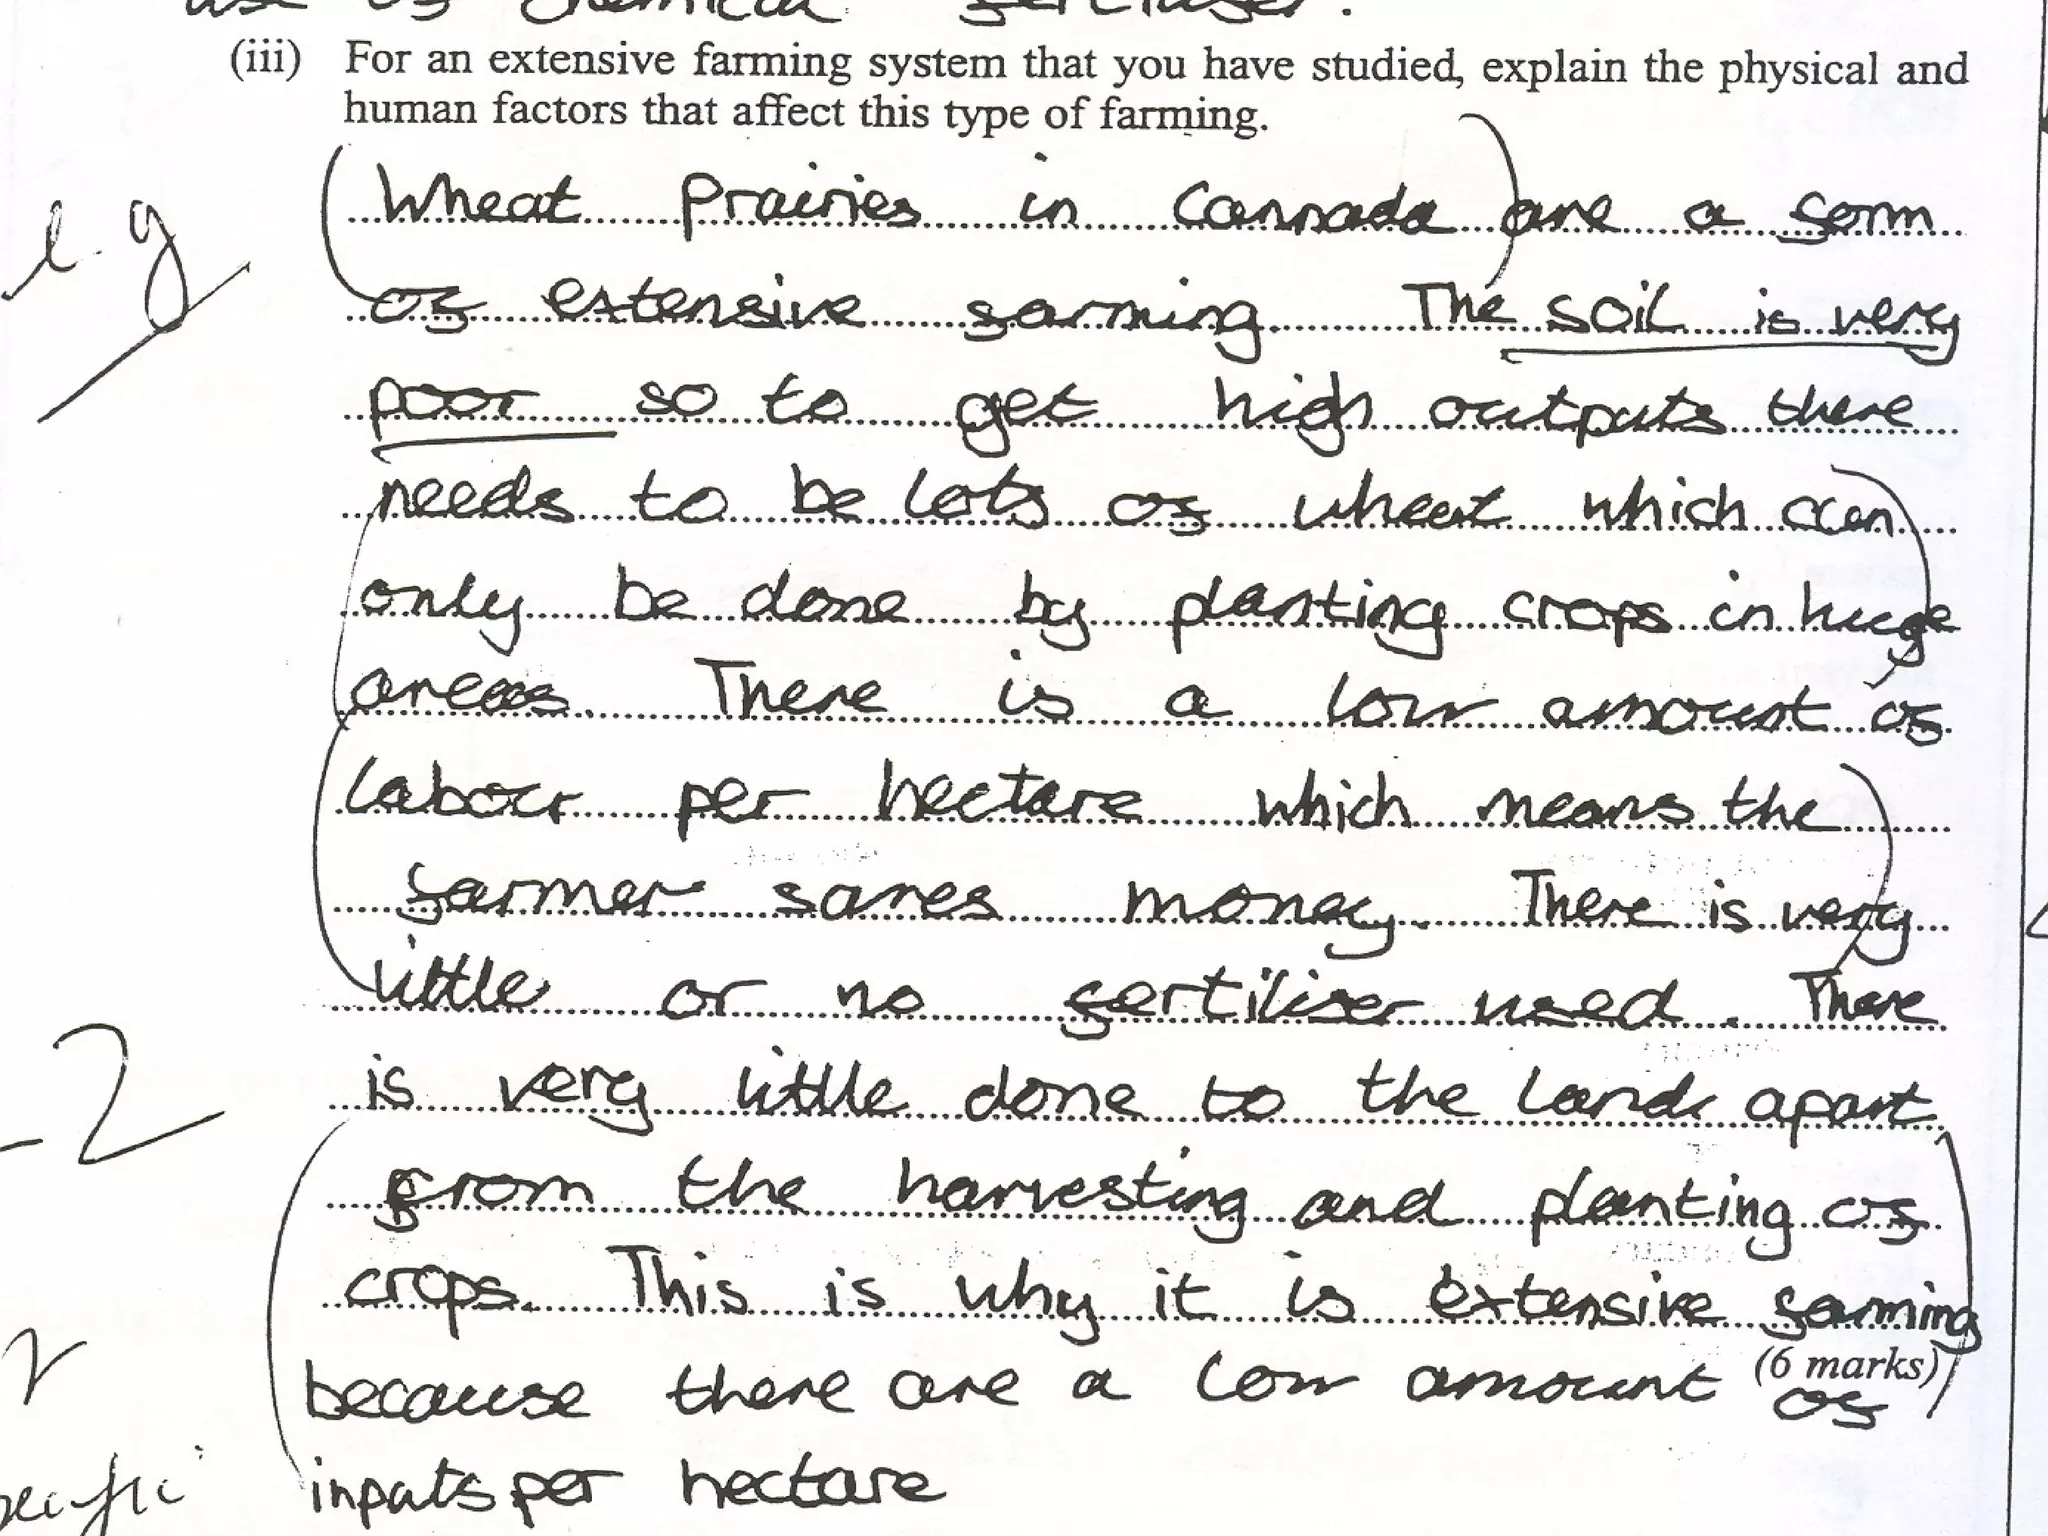 use of chemical fertiliser.
(iii) For an extensive farming system that you have studied, explain the physical and
human factors that affect this type of farming.
e.g
Wheat Prairies in Cannada are a form
of extensive farming. The soil is very
poor so to get high outputs there
needs to be lots of wheat which can
only be done by planting crops in huge
areas. There is a low amount of
labour per hectare which means the
farmer saves money. There is very
little or no fertiliser used. There
is very little done to the land apart
2
from the harvesting and planting of
crops. This is why it is extensive farming
(6 marks)
because there are a low amount of
inputs per hectare